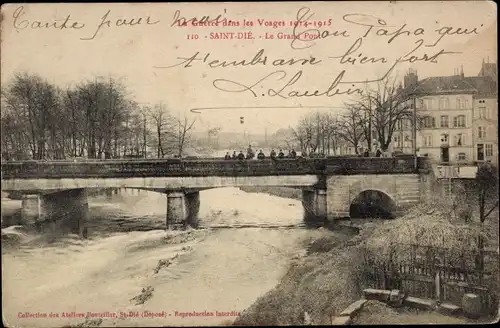 La Guerre dans les Vosges 1914-1915
Santé pour mois
110 - SAINT-DIÉ. - Le Grand Pont
Ton Papa qui
t'embrasse bien fort
L. Laubin
Collection des Ateliers St-Dié (Déposé) - Reproduction interdite